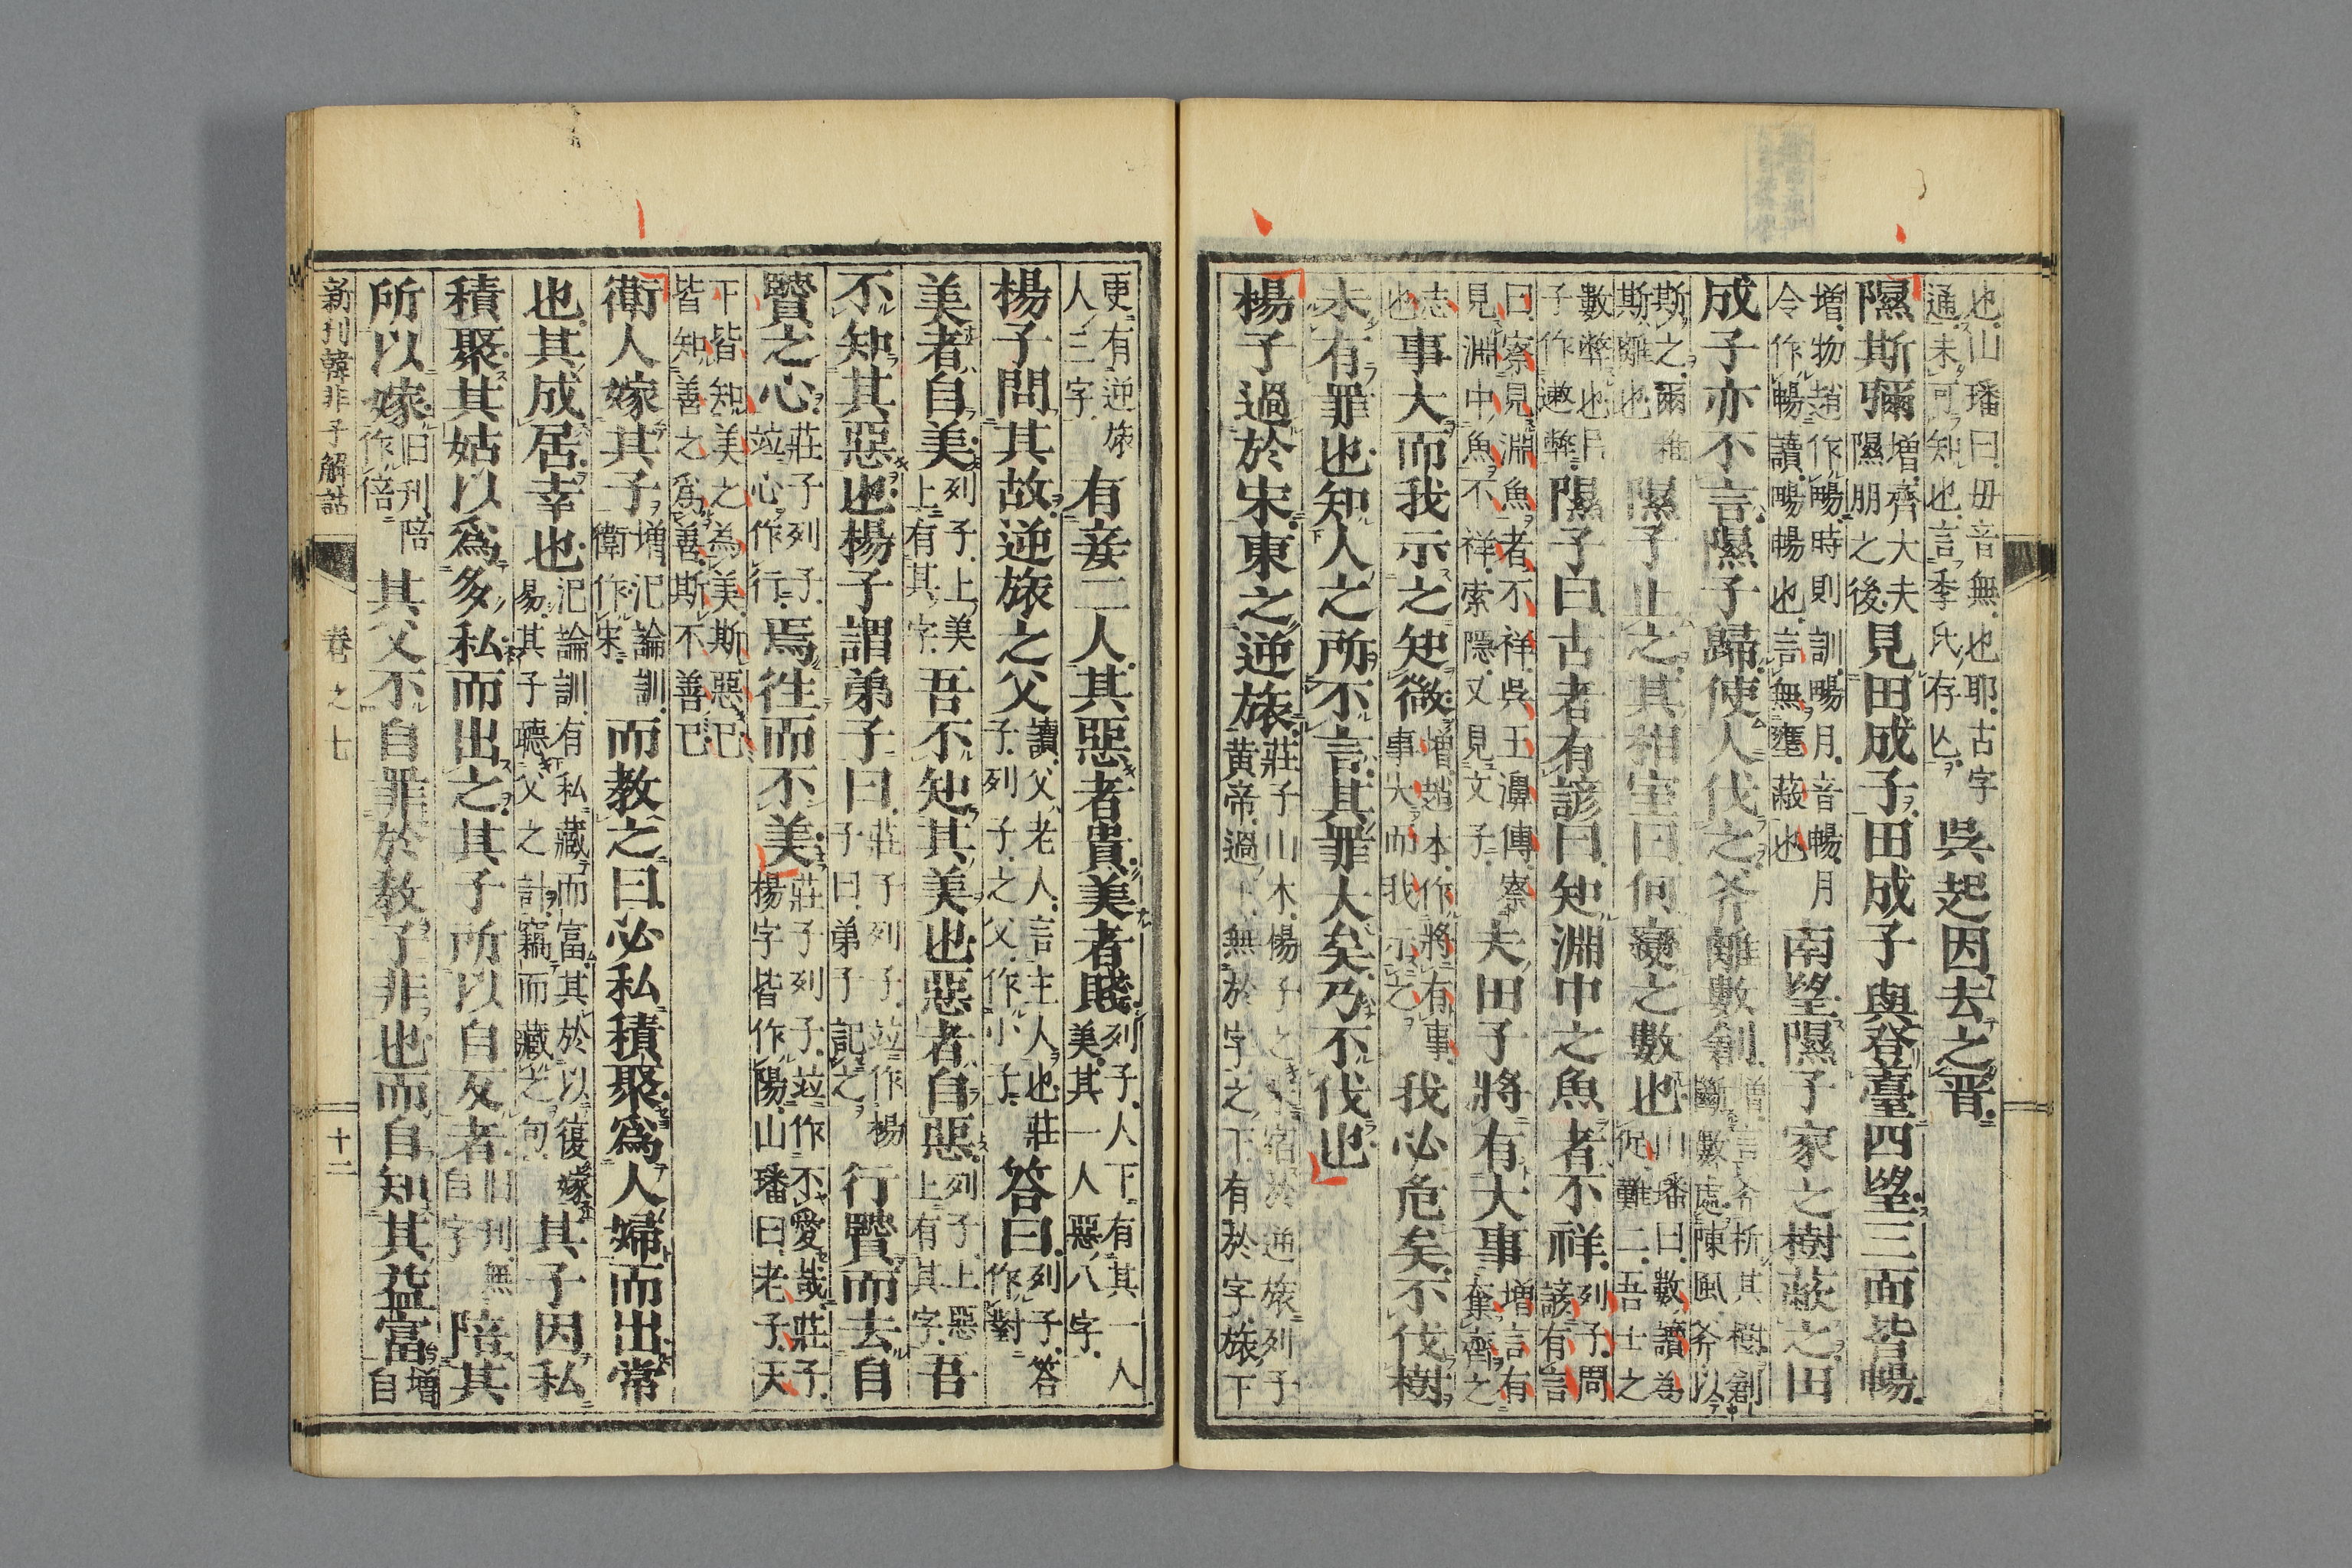 也山璠曰毋音無也耶古字
通未可知也言季氏存亾
吳起因去之晋
隰斯彌
增齊大夫
隰朋之後
見田成子田成子與登臺四望三面皆暢
增物趙作暢時則訓暢月音暢月
令作暢讀暢暢也言無壅蔽也
南望隰子家之樹蔽之田
成子亦不言隰子歸使人伐之斧離數創
增言斧析其樹創
斷數處陳風斧以
斯之爾雅
斯離也
隰子止之其相室曰何變之數也
山璠曰數讀為
促難二吾士之
數弊也呂
子作遬弊
隰子曰古者有諺曰知淵中之魚者不祥
列子問
諺有言
曰察見淵魚者不祥吳王濞傳察
見淵中魚不祥索隱又見文子
夫田子將有大事
增言有
奪齊之
志
也
事大而我示之知微
增趙本作將有事
事大而我示之
我必危矣不伐樹
未有罪也知人之所不言其罪大矣乃不伐也
楊子過於宋東之逆旅
莊子山木陽子之宋宿於逆旅列子
黄帝過下無於字之下有於字旅下
更有逆旅
人三字
有妾二人其惡者貴美者賤
列子人下有其一人
美其一人惡八字
楊子問其故逆旅之父
讀父老人言主人也莊
子列子之父作小子
答曰
列子答
作對
美者自美
列子上美
上有其字
吾不知其美也惡者自惡
列子上惡
上有其字
吾
不知其惡也楊子謂弟子曰
莊子列子竝作楊
子曰弟子記之
行賢而去自
賢之心
莊子列子
竝心作行
焉往而不美
莊子列子竝作不愛哉莊子
楊字皆作陽山璠曰老子天
下皆知美之為美斯惡已
皆知善之為善斯不善已
衛人嫁其子
增氾論訓
衛作宋
而教之曰必私積聚為人婦而出常
也其成居幸也
氾論訓有私藏而富其於以復嫁
易其子聽父之計竊而藏之句
其子因私
積聚其姑以為多私而出之其子所以自反者
旧刊無
自字
陪其
所以嫁
旧刊陪
作倍
其父不自罪於教子非也而自知其益富
增
自
新刊韓非子解詁
卷之七
十二